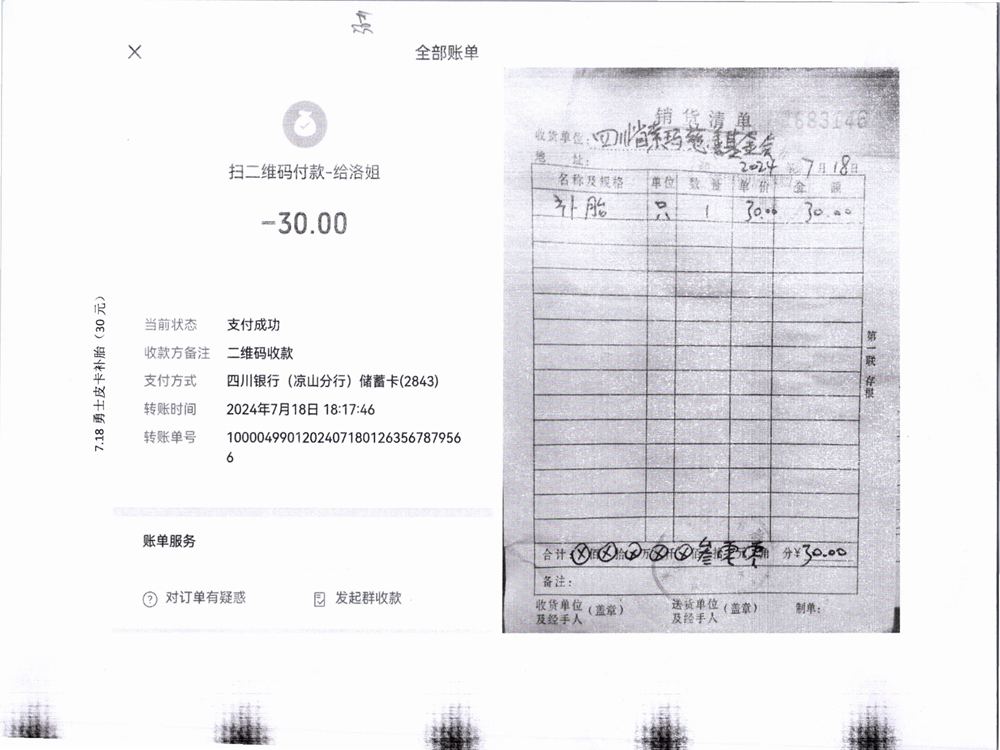 全部账单
扫二维码付款-给洛姐
-30.00
当前状态 支付成功
收款方备注 二维码收款
支付方式 四川银行（凉山分行）储蓄卡(2843)
转账时间 2024年7月18日 18:17:46
转账单号 1000049901202407180126356787956
6
账单服务
对订单有疑惑 发起群收款
7.18 勇士皮卡补胎（30 元）
销货清单
收货单位:四川省索玛慈善基金会
地 址: 2024年7月18日
名称及规格 单位 数量 单价 金额
补胎 只 1 30.00 30.00
第一联 存根
合计: 佰拾万仟佰叁拾零元零角 分¥30.00
备注:
收货单位 (盖章) 送货单位 (盖章) 制单:
及经手人 及经手人